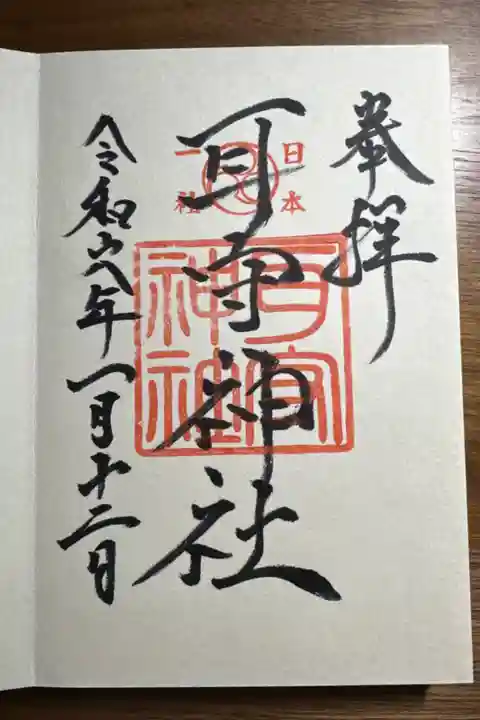 奉拝
日本
一社
耳守神社
耳守
神社
令和六年一月十二日